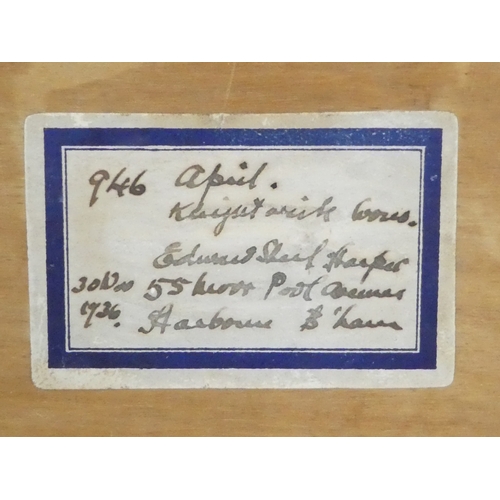 946 April.
Knightwick Worcs.
Edward Steel Harper
55 Moor Pool Avenue
1936. Harborne B'ham